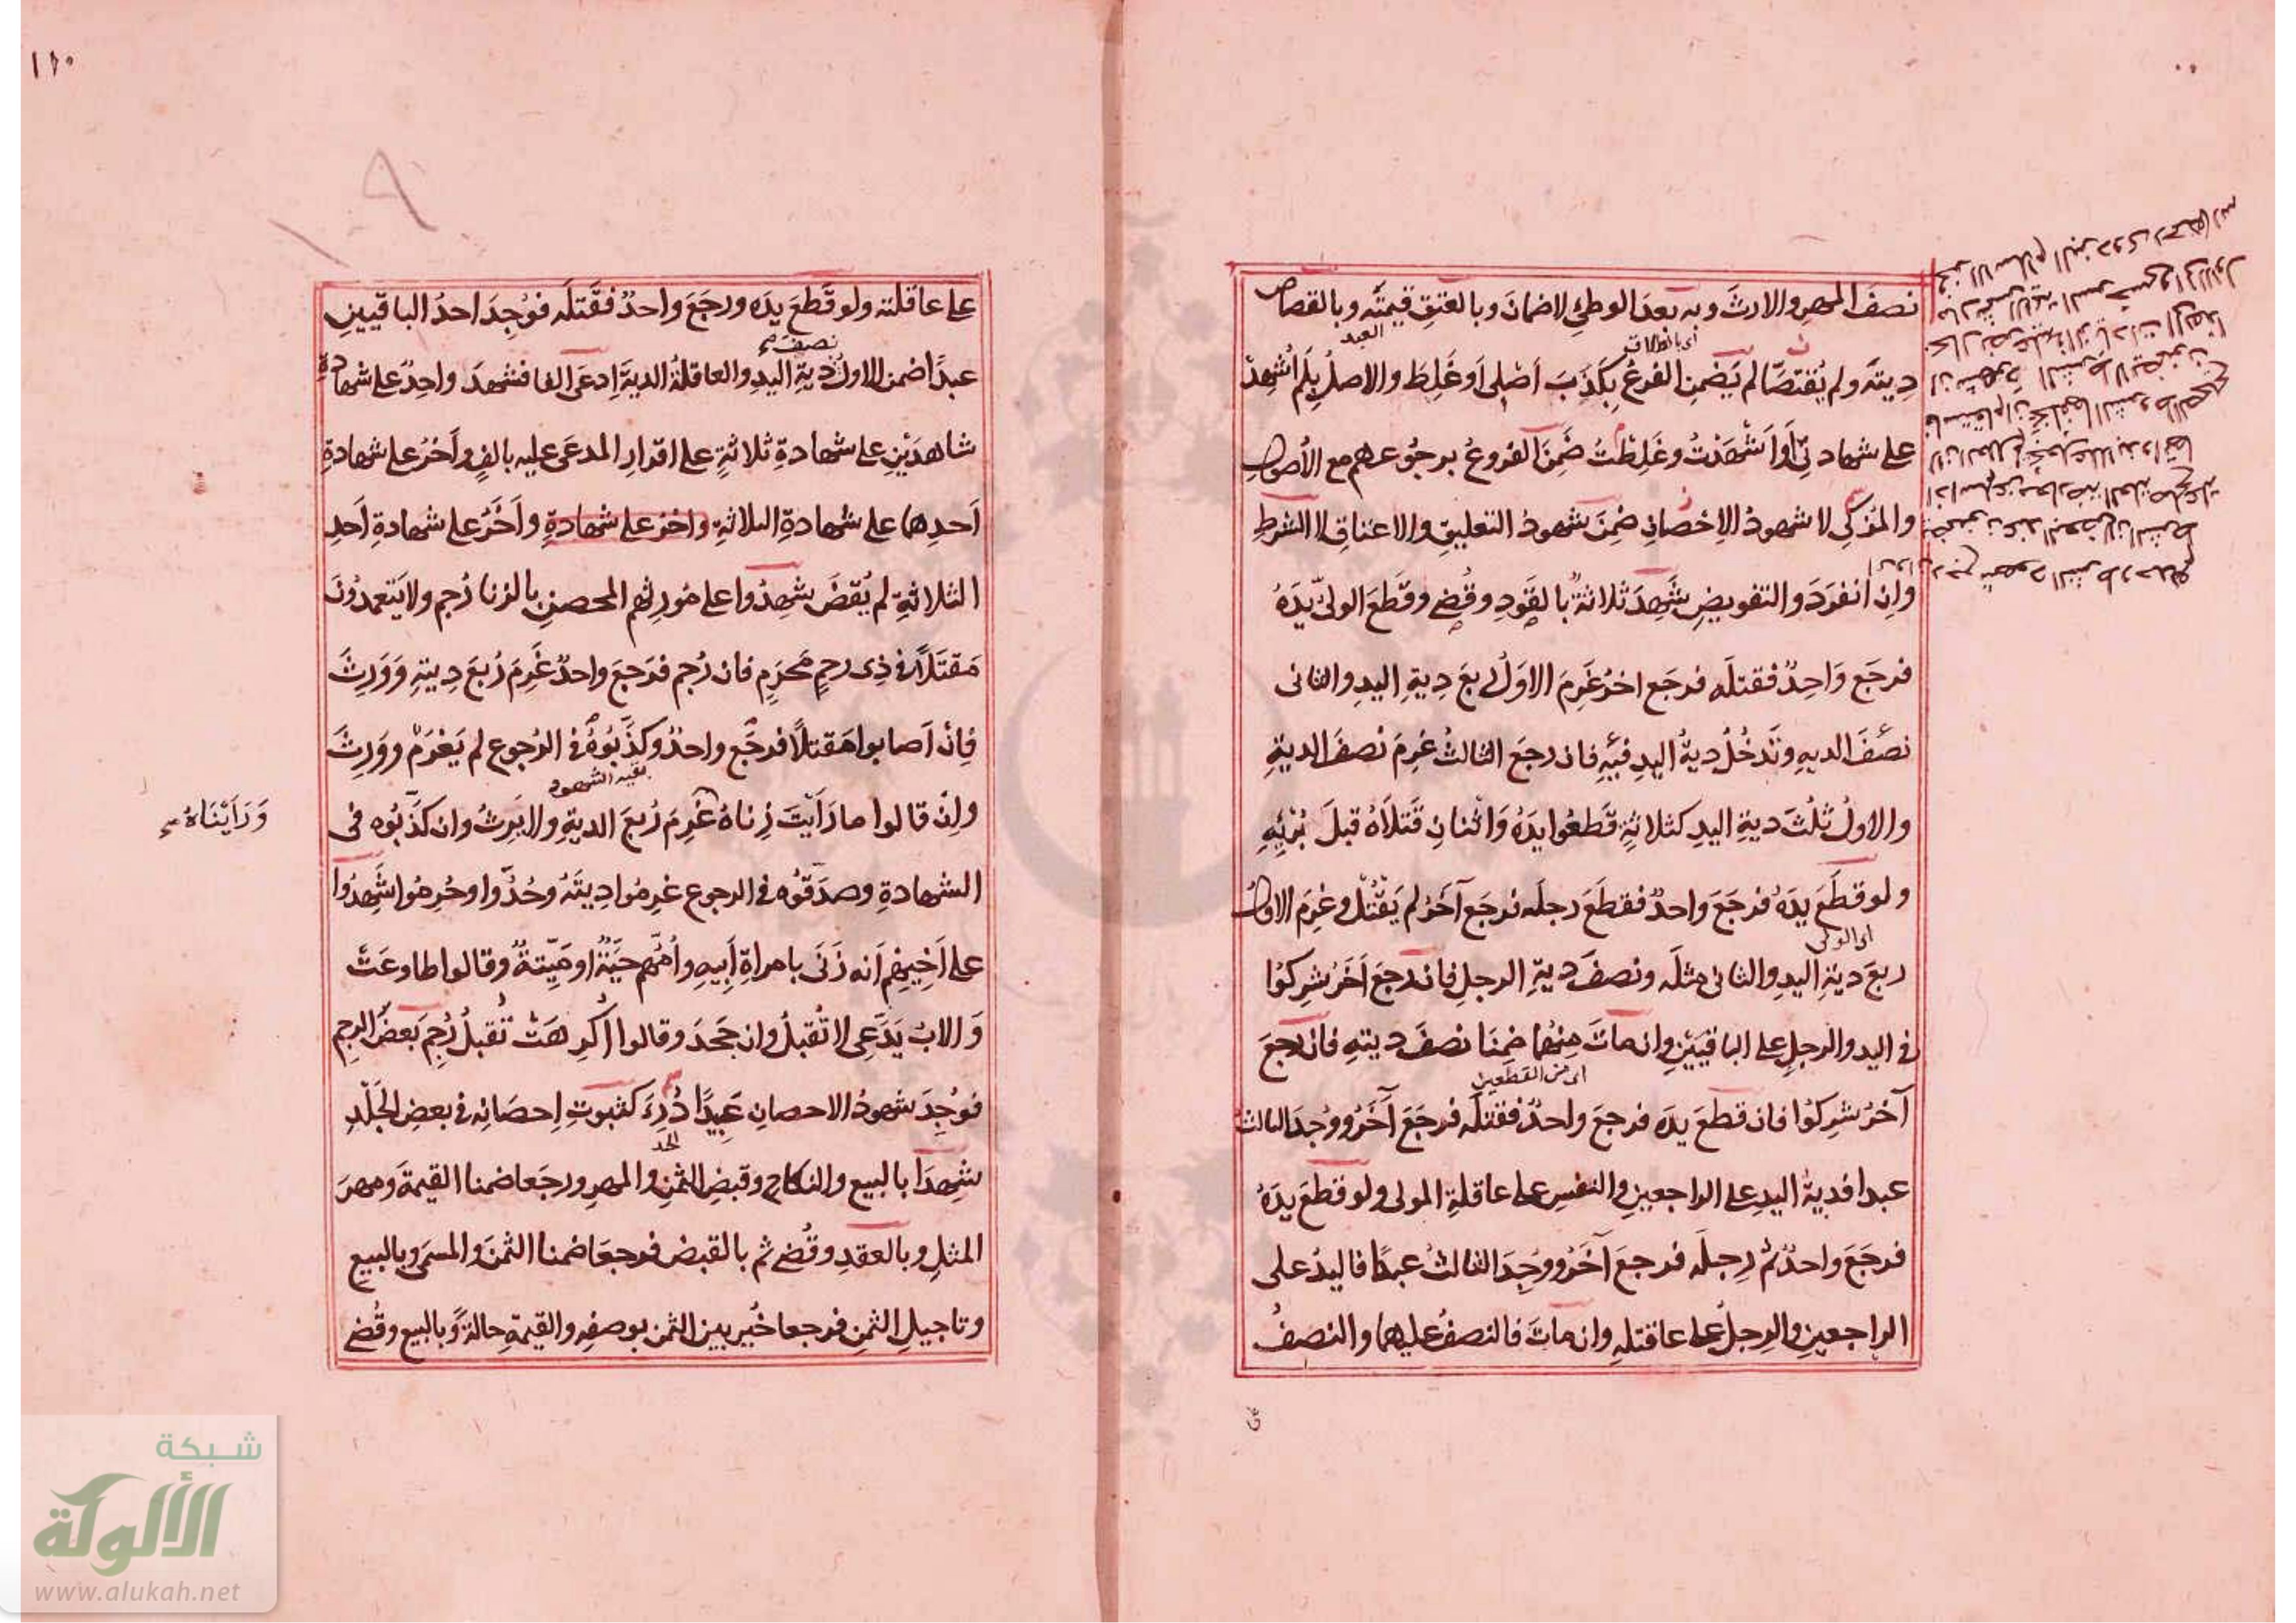 نصفَ المهرِ والارثَ وبه بعدَ الوطئِ لاضمانَ وبالعتقِ قيمتَه وبالقصاص
العبد
اى بالطلاق
ديتَه ولم يُقتصَّا لم يَضمنِ الفرعُ بِكَذِبَ اَصْلى اَو غَلِطَ والاصلُ بِلَم اُشهِدْ
على شهادتى اَو اَشْهَدْتُ وغَلِطْتُ ضَمِنَ الفروعُ برجوعهم مع الاُصولِ
والمُزكى لا شهودُ الاِحْصانِ ضَمِنَ شهودُ التعليقِ والاعتاقِ لا الشرطِ
وانِ انفَرَدَ والتفويضِ شَهِدَ ثلاثةٌ بالقَوَدِ وقُضِى وقَطَعَ الولىُّ يَدَهُ
فرجَع وَاحِدٌ فقتلَه فرجَع اخرُ غَرِمَ الاوَلُ ربعَ دِيةِ اليدِ والثانى
نصْفَ الديهِ وتَدخُلُ ديةُ اليدِ فيهِ فان رجعَ الثالثُ غرِمَ نصفَ الديةِ
والاولُ ثُلُثَ ديةِ اليدِ كثلاثةٍ قَطَعُوا يدَهُ وَاثْنانِ قَتَلَاهُ قبلَ بُرْئِهِ
ولو قَطَعَ يدَهُ فرَجَعَ واحدٌ فقطَعَ رجلَه فرجَع آخَرُ لم يَقْتُلْ وغرِمَ الاولُ
اى الولى
ربعَ ديةِ اليدِ والثانى مثلَه ونصفَ ديةِ الرجلِ فان رجعَ آخَرُ شرِكُوا
فى اليدِ والرجلِ على الباقيَيْنِ وان ماتَ مِنهُما ضَمِنَا نصفَ ديتِهِ فان رجعَ
اى من القطعين
آخرُ شرِكُوا فان قطَعَ يدَه فرجعَ واحدٌ فقتلَه فرجَعَ آخَرُ ووُجدَ الثالثُ
عبدا فديةُ اليدِ على الراجعينِ والنفسِ على عاقلةِ المولى ولو قَطَعَ يدَهُ
فرجَعَ واحدٌ ثُم رِجلَه فرجعَ آخَرُ ووُجِدَ الثالثُ عبدًا فاليدُ على
الراجعينِ والرِجلُ على عاقلتهِ وان ماتَ فالنصفُ عليهما والنصفُ
١١٠
على عاقلته ولو قَطعَ يدَه ورجَعَ واحدٌ فقَتلَه فوُجِدَ احدُ الباقيينِ
نصف صح
عبدًا ضمن الاولُ دِيةِ اليدِ والعاقلةُ الديةَ اِدعَى الفا فشهدَ واحِدٌ على شهادةِ
شاهدَيْنِ على شهادةِ ثلاثةٍ على اقرارِ المدعَى عليه بالفٍ وآخرُ على شهادةِ
اَحدِهما على شهادةِ الثلاثةِ واخرُ على شهادةِ واَخَرُ على شهادةِ اَحدِ
الثلاثةِ لم يُقضَ شهِدُوا على مُورثهم المحصنِ بالزنا رُجم ولا يَتعمدُونَ
مَقتَلاً كذِى رحمٍ مَحرَمٍ فان رُجم فرَجعَ واحدٌ غَرِمَ رُبعَ دِيتِهِ وَوَرِثَ
فاِنْ اَصابوا مَقتلاً فرجَع واحدٌ وكذَّبُوهُ فى الرُجوع لم يَغْرَمْ ووَرِثَ
بقية الشهود
واِنْ قالوا ما رَاَيْتَ زِناهُ غَرِمَ رُبعَ الديةِ ولا يَرثُ وان كذَّبُوه فى
وَرَاَيْنَاهُ صح
الشهادةِ وصدَّقُوه فى الرجوع غرِمُوا دِيتَهُ وحُدُّوا وحُرِمُوا شَهِدُوا
على اَخِيهِم اَنه زَنَى بامراةِ اَبِيهِ واُمُّهم حَيَّةٌ او مَيّتةٌ وقالوا طاوعَتْ
وَالابُ يَدَّعِى لا تُقبلُ وان جَحَدَ وقالوا اُكرِهَتْ تُقبلُ رُجِمَ بعضُ الرجمِ
فوُجِدَ شهودُ الاحصانِ عَبِيدًا دُرِئَ كثبوتِ اِحصَانِه فى بعضِ الجَلْدِ
الحد
شهِدَا بالبيعِ والنكاحِ وقبضِ الثمنِ والمهرِ ورجَعا ضمنا القيمةَ ومهرَ
المثلِ وبالعقدِ وقُضِى ثم بالقبضِ فرجعَا ضمنا الثمنَ والمسمَى وبالبيعِ
وتاجيلِ الثمنِ فرجعا خُيِّر بين الثمنِ بوصفِه والقيمةِ حالةً وبالبيعِ وقُضِى
شبكة
الألوكة
www.alukah.net